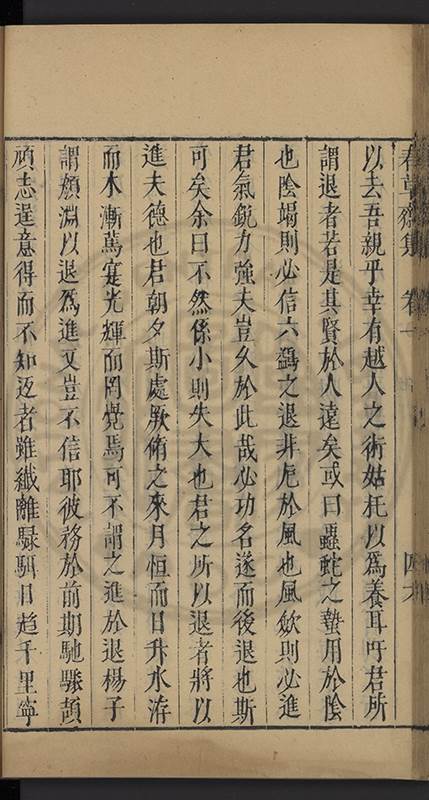 春草齋集　卷十　四六
以去吾親乎幸有越人之術姑托以爲養耳吁君所
謂退者若是其賢於人遠矣或曰蠶蛇之蟄用於陰
也陰竭則必信六鷁之退非厄於風也風歛則必進
君氣銳力強夫豈久於此哉必功名遂而後退也斯
可矣余曰不然係小則失大也君之所以退者將以
進夫德也君朝夕斯處厥脩之來月恒而日升水洊
而木漸萬寔光輝而罔覺焉可不謂之進於退楊子
謂顏淵以退爲進又豈不信耶彼務於前期馳驟顛
頑志逞意得而不知返者雖纖離騄駬日趍千里寧